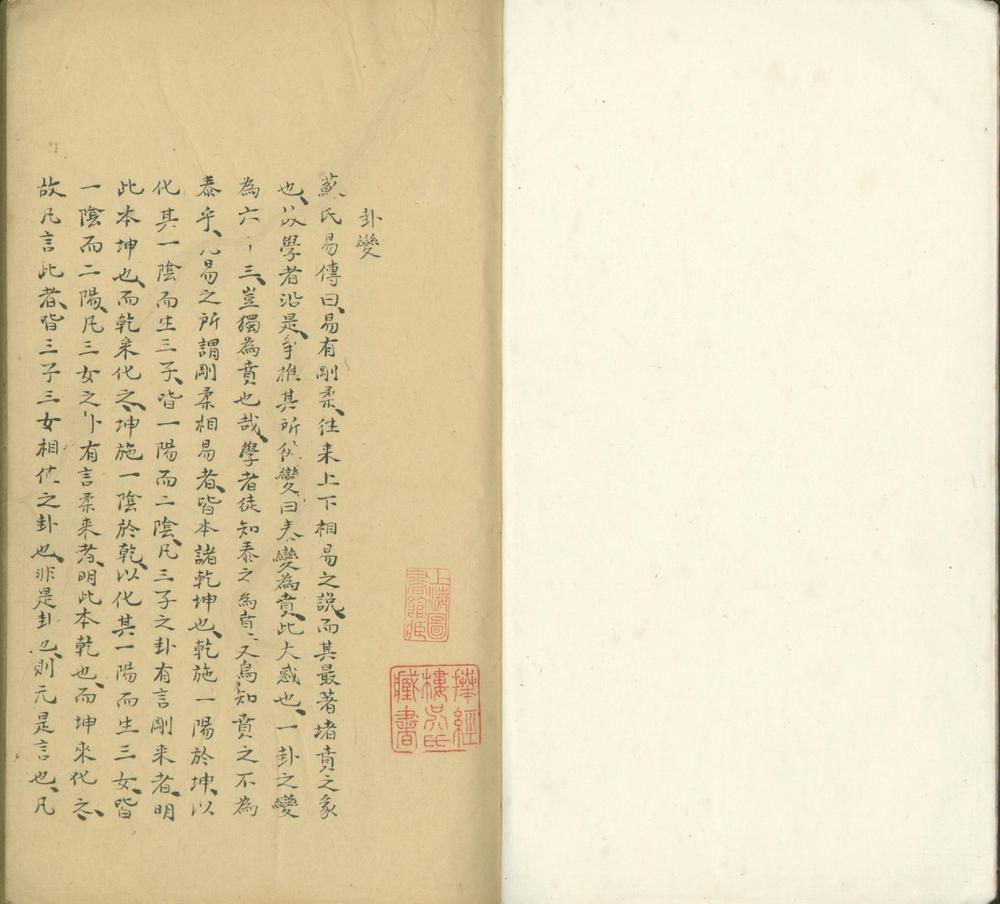 卦變
蘇氏易傳曰易有剛柔往来上下相易之說而其最著堵賁之彖
也、故學者沿是爭推其所從變曰泰變為賁此大惑也、一卦之變
為六十三、豈獨為賁也哉、學者徒知泰之為賁又烏知賁之不為
泰乎、凡易之所謂剛柔相易者皆本諸乾坤也、乾施一陽於坤、以
化其一陰而生三子、皆一陽而二陰、凡三子之卦有言剛来者、明
此本坤也、而乾来化之、坤施一陰於乾、以化其一陽而生三女、皆
一陰而二陽、凡三女之卦有言柔来者、明此本乾也、而坤來化之、
故凡言此者、皆三子三女相值之卦也、非是卦也、則无是言也、凡
上海圖書館臧
揅經樓吳氏臧書